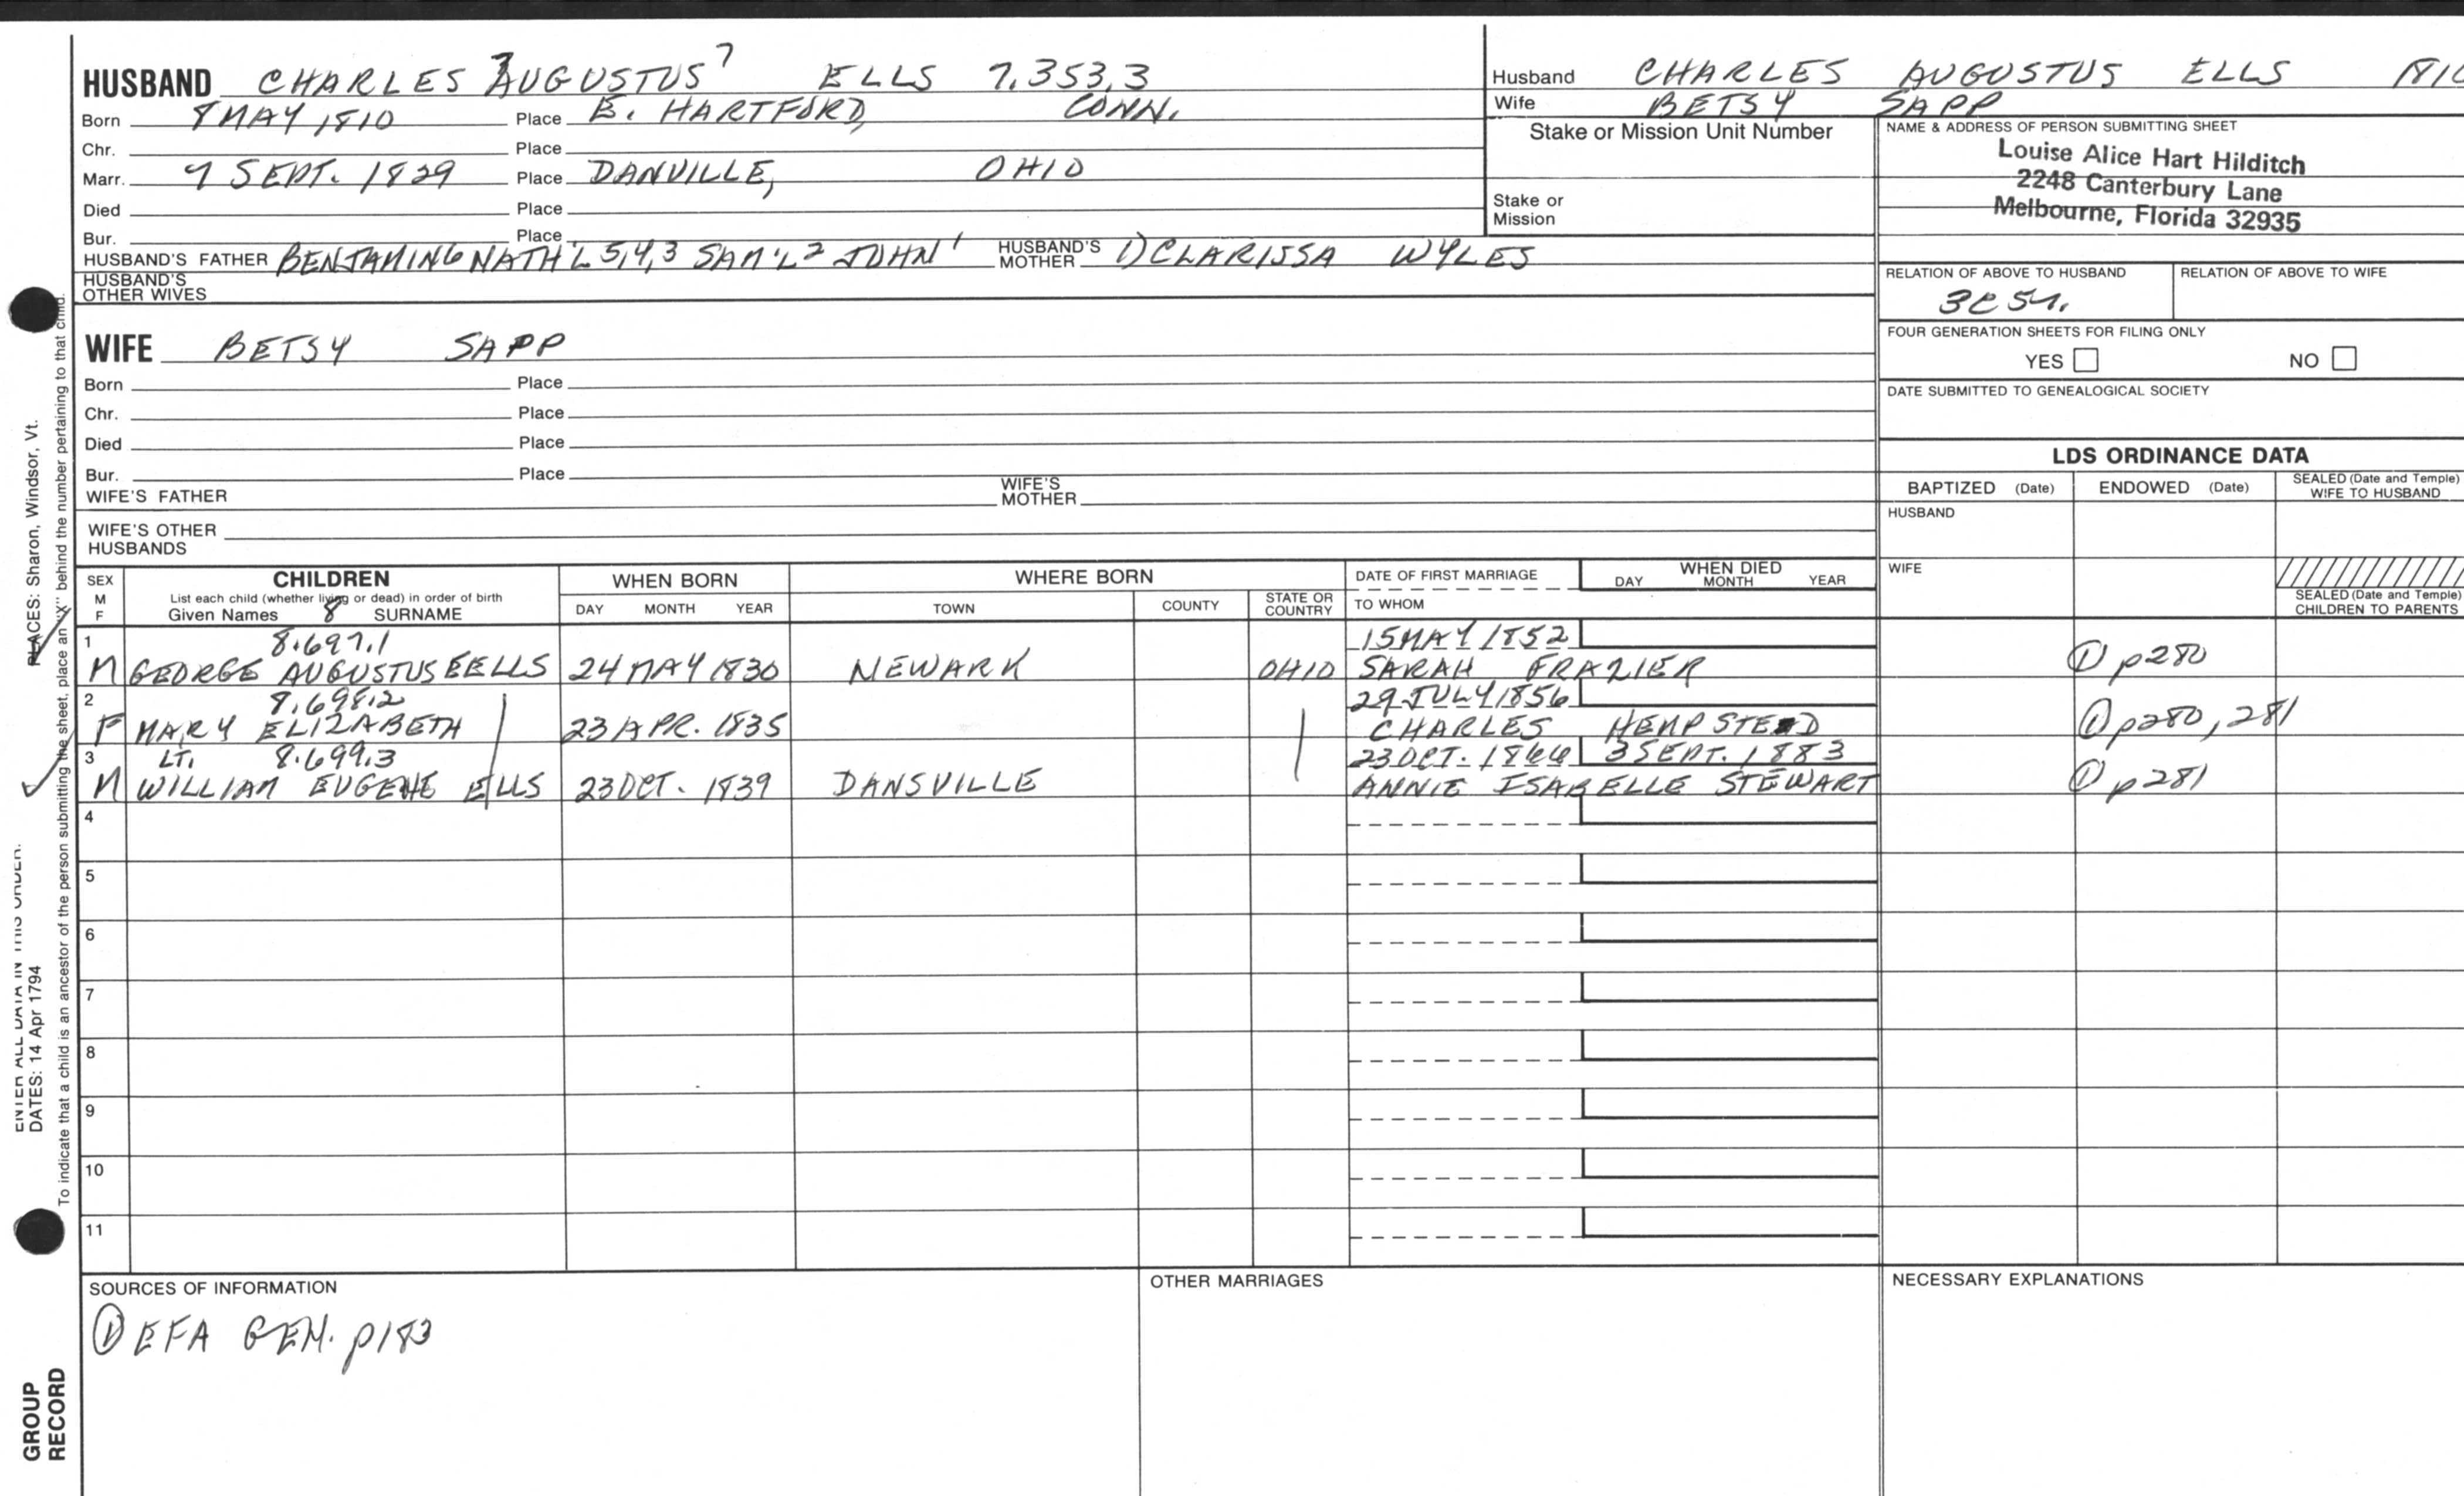 HUSBAND CHARLES AUGUSTUS 7 ELLS 7.353.3
Born 8 MAY 1810 Place E. HARTFORD, CONN.
Chr. Place
Marr. 7 SEPT. 1829 Place DANVILLE, OHIO
Died Place
Bur. Place
HUSBAND'S FATHER BENJAMIN6 NATH'L 5,4,3 SAM'L2 JOHN1 HUSBAND'S MOTHER 1) CLARISSA WYLES
HUSBAND'S OTHER WIVES
WIFE BETSY SAPP
Born Place
Chr. Place
Died Place
Bur. Place
WIFE'S FATHER WIFE'S MOTHER
WIFE'S OTHER HUSBANDS
Husband CHARLES AUGUSTUS ELLS
Wife BETSY SAPP
Stake or Mission Unit Number
Stake or Mission
NAME & ADDRESS OF PERSON SUBMITTING SHEET
Louise Alice Hart Hilditch
2248 Canterbury Lane
Melbourne, Florida 32935
RELATION OF ABOVE TO HUSBAND RELATION OF ABOVE TO WIFE
FOUR GENERATION SHEETS FOR FILING ONLY
YES NO
DATE SUBMITTED TO GENEALOGICAL SOCIETY
LDS ORDINANCE DATA
BAPTIZED (Date) ENDOWED (Date) SEALED (Date and Temple) WIFE TO HUSBAND
HUSBAND
WIFE
SEALED (Date and Temple) CHILDREN TO PARENTS
SEX M F CHILDREN WHEN BORN WHERE BORN DATE OF FIRST MARRIAGE WHEN DIED
List each child (whether living or dead) in order of birth
Given Names 8 SURNAME DAY MONTH YEAR TOWN COUNTY STATE OR COUNTRY TO WHOM DAY MONTH YEAR
1 8.697.1 15 MAY 1852
M GEORGE AUGUSTUS EELLS 24 MAY 1830 NEWARK OHIO SARAH FRAZIER ① p280
2 8.698.2 29 JULY 1856
F MARY ELIZABETH 23 APR. 1835 CHARLES HEMPSTEAD ① p280, 281
3 LT. 8.699.3 23 OCT. 1866 3 SEPT. 1883
M WILLIAM EUGENE ELLS 23 OCT. 1839 DANSVILLE ANNIE ISABELLE STEWART ① p281
4
5
6
7
8
9
10
11
SOURCES OF INFORMATION OTHER MARRIAGES NECESSARY EXPLANATIONS
① EFA GEN. p183
PLACES: Sharon, Windsor, Vt.
To indicate that a child is an ancestor of the person submitting the sheet, place an "X" behind the number pertaining to that child.
ENTER ALL DATA IN THIS ORDER.
DATES: 14 Apr 1794
GROUP RECORD